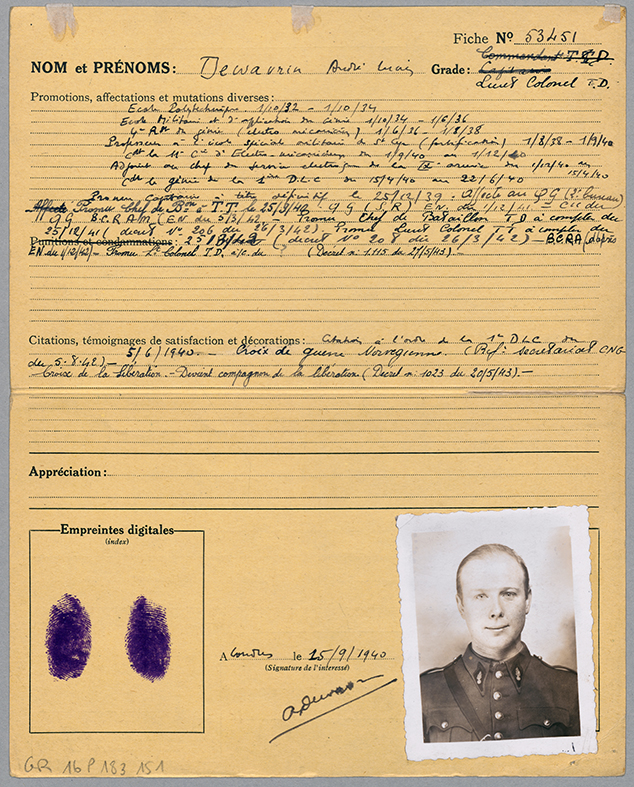 Fiche Nº 53451
Commandant T.D.
NOM et PRÉNOMS: Dewavrin André Grade: Capitaine
Lieut Colonel T.D.
Promotions, affectations et mutations diverses:
Ecole Polytechnique 1/10/32 - 1/10/34
Ecole Militaire et d'application du génie 1/10/34 - 1/6/36
4e du génie (electro mecanicien) 1/6/36 - 1/8/38
Professeur à l'école spéciale militaire de St Cyr (fortification) 1/8/38 - 1/9/40
Cdt la 11e Cie d'Electro-mecaniciens du 1/9/40 au 1/12/40
Adjoint au chef du service electrique de la IX armée du 1/12/40 au 15/4/40
Cdt le génie de la 1ère D.L.C du 15/4/40 au 22/6/40
Promu Capitaine à titre définitif le 25/12/39. Affecté au QG (2e bureau)
Promu Chef de Bon T.T. le 25/3/41
Q G B.C.R.A.M. (EN du 5/3/42 - Promu Chef de Bataillon T D à compter du
25/12/41 (decret Nº 206 du 26/3/42). Promu Lieut Colonel T T à compter du
Punitions et condamnations: (decret Nº 208 du 26/3/42) - BCRA (d'après
EN du 1/12/42) - Promu Lt Colonel T.D. a/c. du ? (Decret n: 1.115 du 27/5/43). -
Citations, témoignages de satisfaction et décorations: Citation à l'ordre de la 1e D L C du
5/6/1940. - Croix de guerre Norvegienne. (Ref: secretariat CNG
du 5-8-42) -
Croix de la Libération. - Devient compagnon de la libération (Decret n: 1023 du 20/5/43). -
Appréciation:
Empreintes digitales
(index)
A Londres le 15/9/1940
(Signature de l'interessé)
GR 16 P 183 151